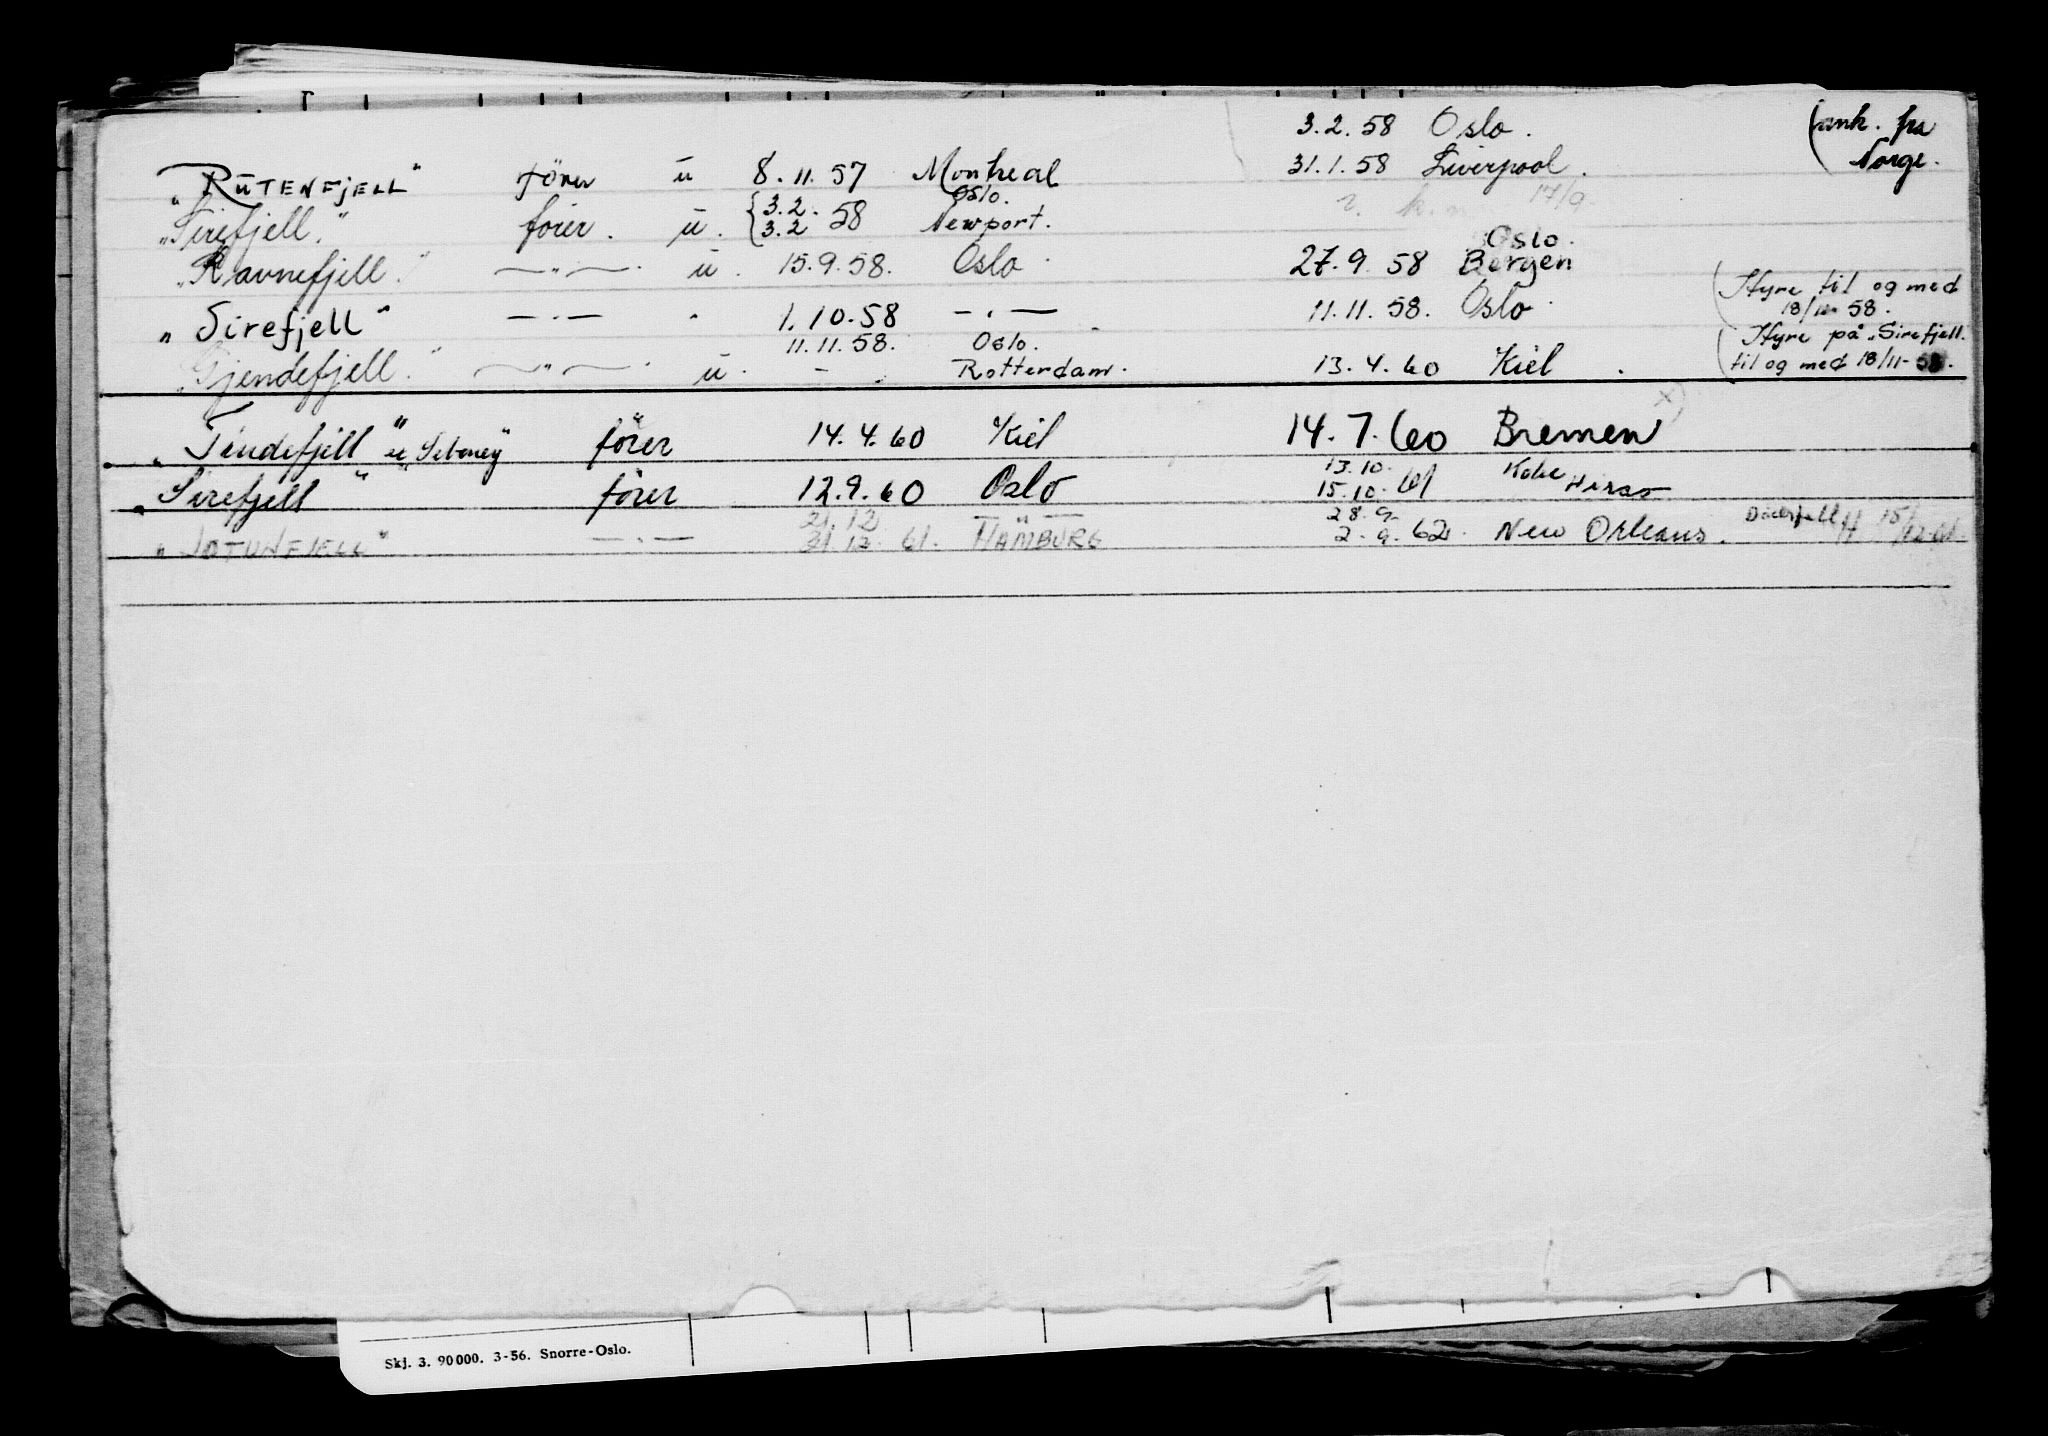 3.2.58 Oslo. (ank. fra
"RUTENFJELL" förer ū 8.11.57 Montreal 31.1.58 Liverpool. Norge.
Oslo. 17/9
"Sirefjell." förer. ū. {3.2. 3.2 58 Newport.
Oslo.
"Ravnefjell." —"—. ū. 15.9.58. Oslo 27.9 58 Bergen
(Hyre til og med
"Sirefjell" —"— " 1.10.58 —"— 11.11.58. Oslo 18/11- 58.
11.11.58. Oslo. (Hyre på "Sirefjell.
"Gjendefjell." —"—. ū. - . Rotterdam. 13.4.60 Kiel . til og med 18/11-58.
x)
"Tindefjell" förer 14.4.60 Kiel 14.7.60 Bremen
13.10. Kobe
"Sirefjell" förer 12.9.60 Oslo 15.10. 61
21.12 — " — 28.9.
"JOTUNFJELL" —"— 31.12. 61. HAMBURG 2.9.62. New Orleans.
Skj. 3. 90000. 3-56. Snorre-Oslo.